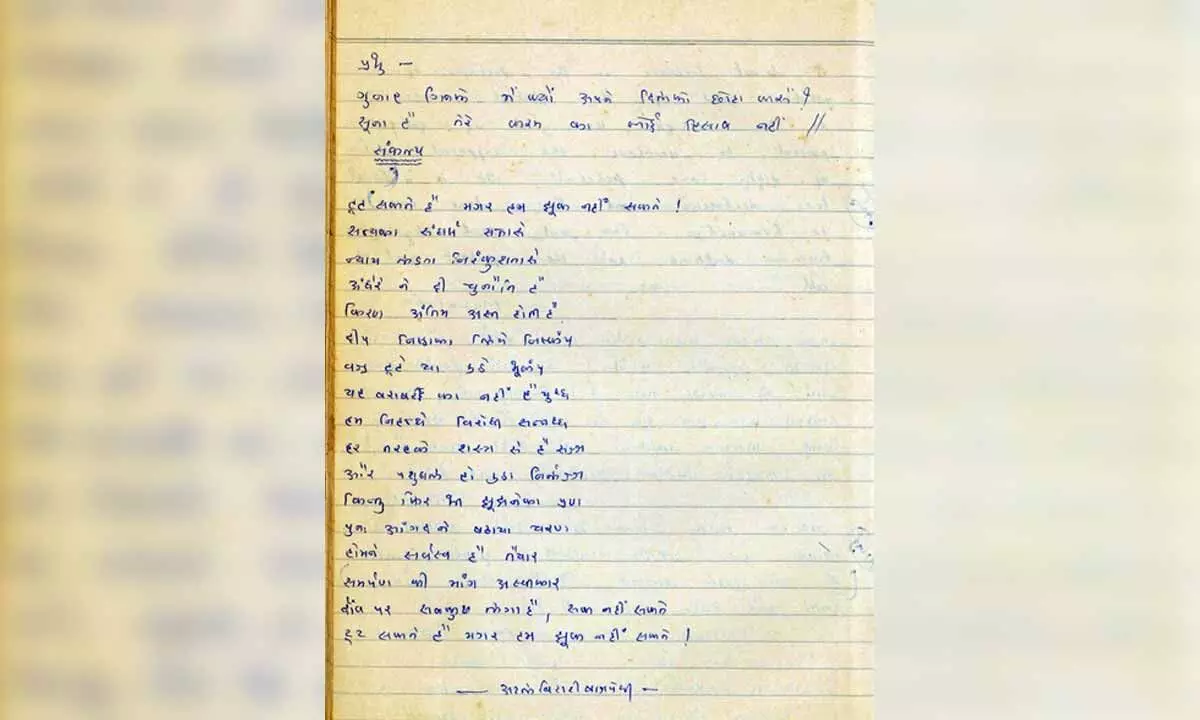 પ્રભુ -
ગુનાહ ગિનકે મૈં ક્યોં અપને દિલકો છોટા કરું?
સુના હૈ તેરે કરમ કા કોઈ હિસાબ નહીં //
સંકલ્પ
ટૂટ સકતે હૈં મગર હમ ઝૂક નહીં સકતે !
સત્યકા સંઘર્ષ સત્તાસે
ન્યાય લડતા નિરંકુશતાસે
અંધેરે ને દી ચુનૌતિ હૈ
કિરણ અંતિમ અસ્ત હોતી હૈ
દીપ નિષ્ઠાકા લિયે નિષ્કંપ
વજ્ર ટૂટે યા ઉઠે ભૂકંપ
યહ બરાબરી કા નહીં હૈ યુધ્ધ
હમ નિહથ્થે વિરોધી સન્નધ્ધ
હર તરહકે શસ્ત્ર સે હૈ સજ્જ
ઔર પશુબલ હો ઉઠા નિર્લજ્જ
કિન્તુ ફિર ભી ઝૂઝનેકા પ્રણ
પુનઃ અંગદ ને બઢાયા ચરણ
હોમને સર્વસ્વ હૈં તૈયાર
સમર્પણ કી માંગ અસ્વીકાર
દાંવ પર સબકુછ લગા હૈ, રુક નહીં સકતે
ટૂટ સકતે હૈં મગર હમ ઝૂક નહીં સકતે !
— અટલ બિહારી બાજપેયી —